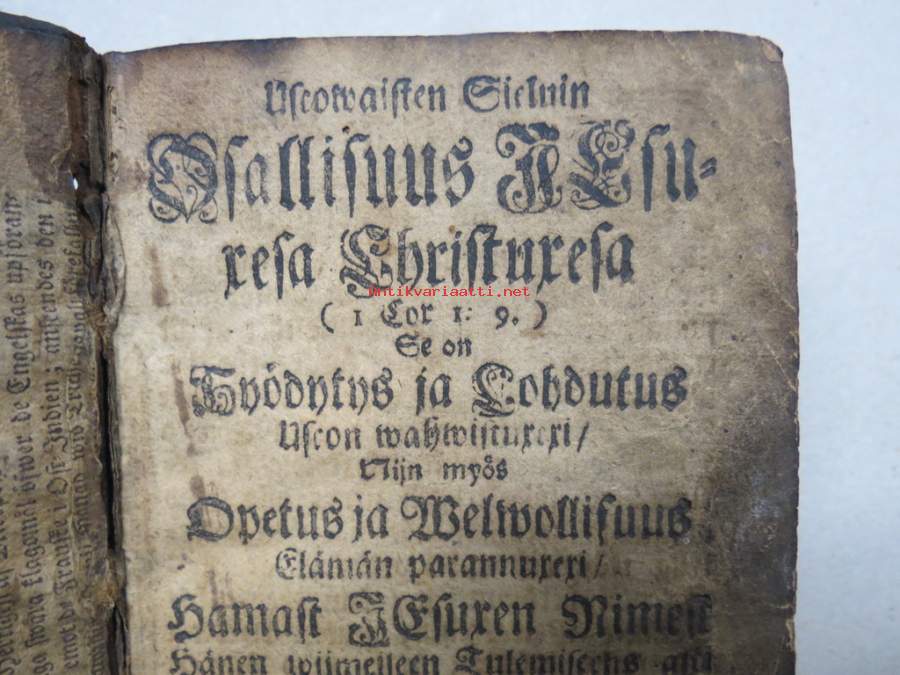 Uscowaisten Sieluin
Osallisuus JEsu-
xesa Christuxesa
( 1 Cor 1: 9. )
Se on
Hyödytys ja Lohdutus
Uscon wahwistuxexi/
Nijn myös
Opetus ja Welwollisuus
Elämän parannuxexi/
Hamast JEsuxen Nimest
Hänen wiimeiseen Tulemiseens asti
antikvariaatti.net
klagomål öfwer de Engelskas
emot de Franske i Ost-Indien; ankendes den